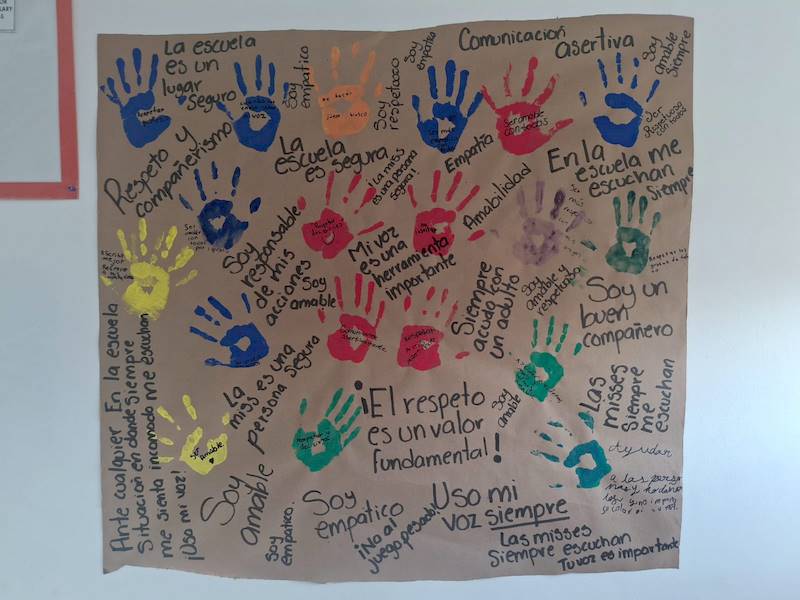 La escuela
es un
lugar
seguro
Soy
empatico
Soy
respetuoso
Soy
empatico
Comunicación
asertiva
Soy
amable
Siempre
Ser
Respetuoso
con todos
Respeto y
compañerismo
La
escuela
es segura
¡La miss
es una persona
segura!
Empatía
Ser amable
con todos
En la
escuela me
escuchan
Siempre
Amabilidad
Soy
responsable
de mis
acciones
Mi voz
es una
herramienta
importante
Soy
amable
Siempre
acuda con
un adulto
Soy amable y
respetuoso
Soy un
buen
compañero
Ante cualquier
Situación
me sienta incomodo
¡Uso mi voz!
En la escuela
en donde siempre
me escuchan
La
miss es una
persona segura
Ser
amable
Soy
amable
Soy
empatico
Soy
empatico
¡El respeto
es un valor
fundamental!
Soy
amable
Las
misses
Siempre
me
escuchan
ayudar
a las perso
nas y
¡No al
juego pesado!
Uso mi
voz siempre
Las misses
Siempre escuchan
Tu voz es importante